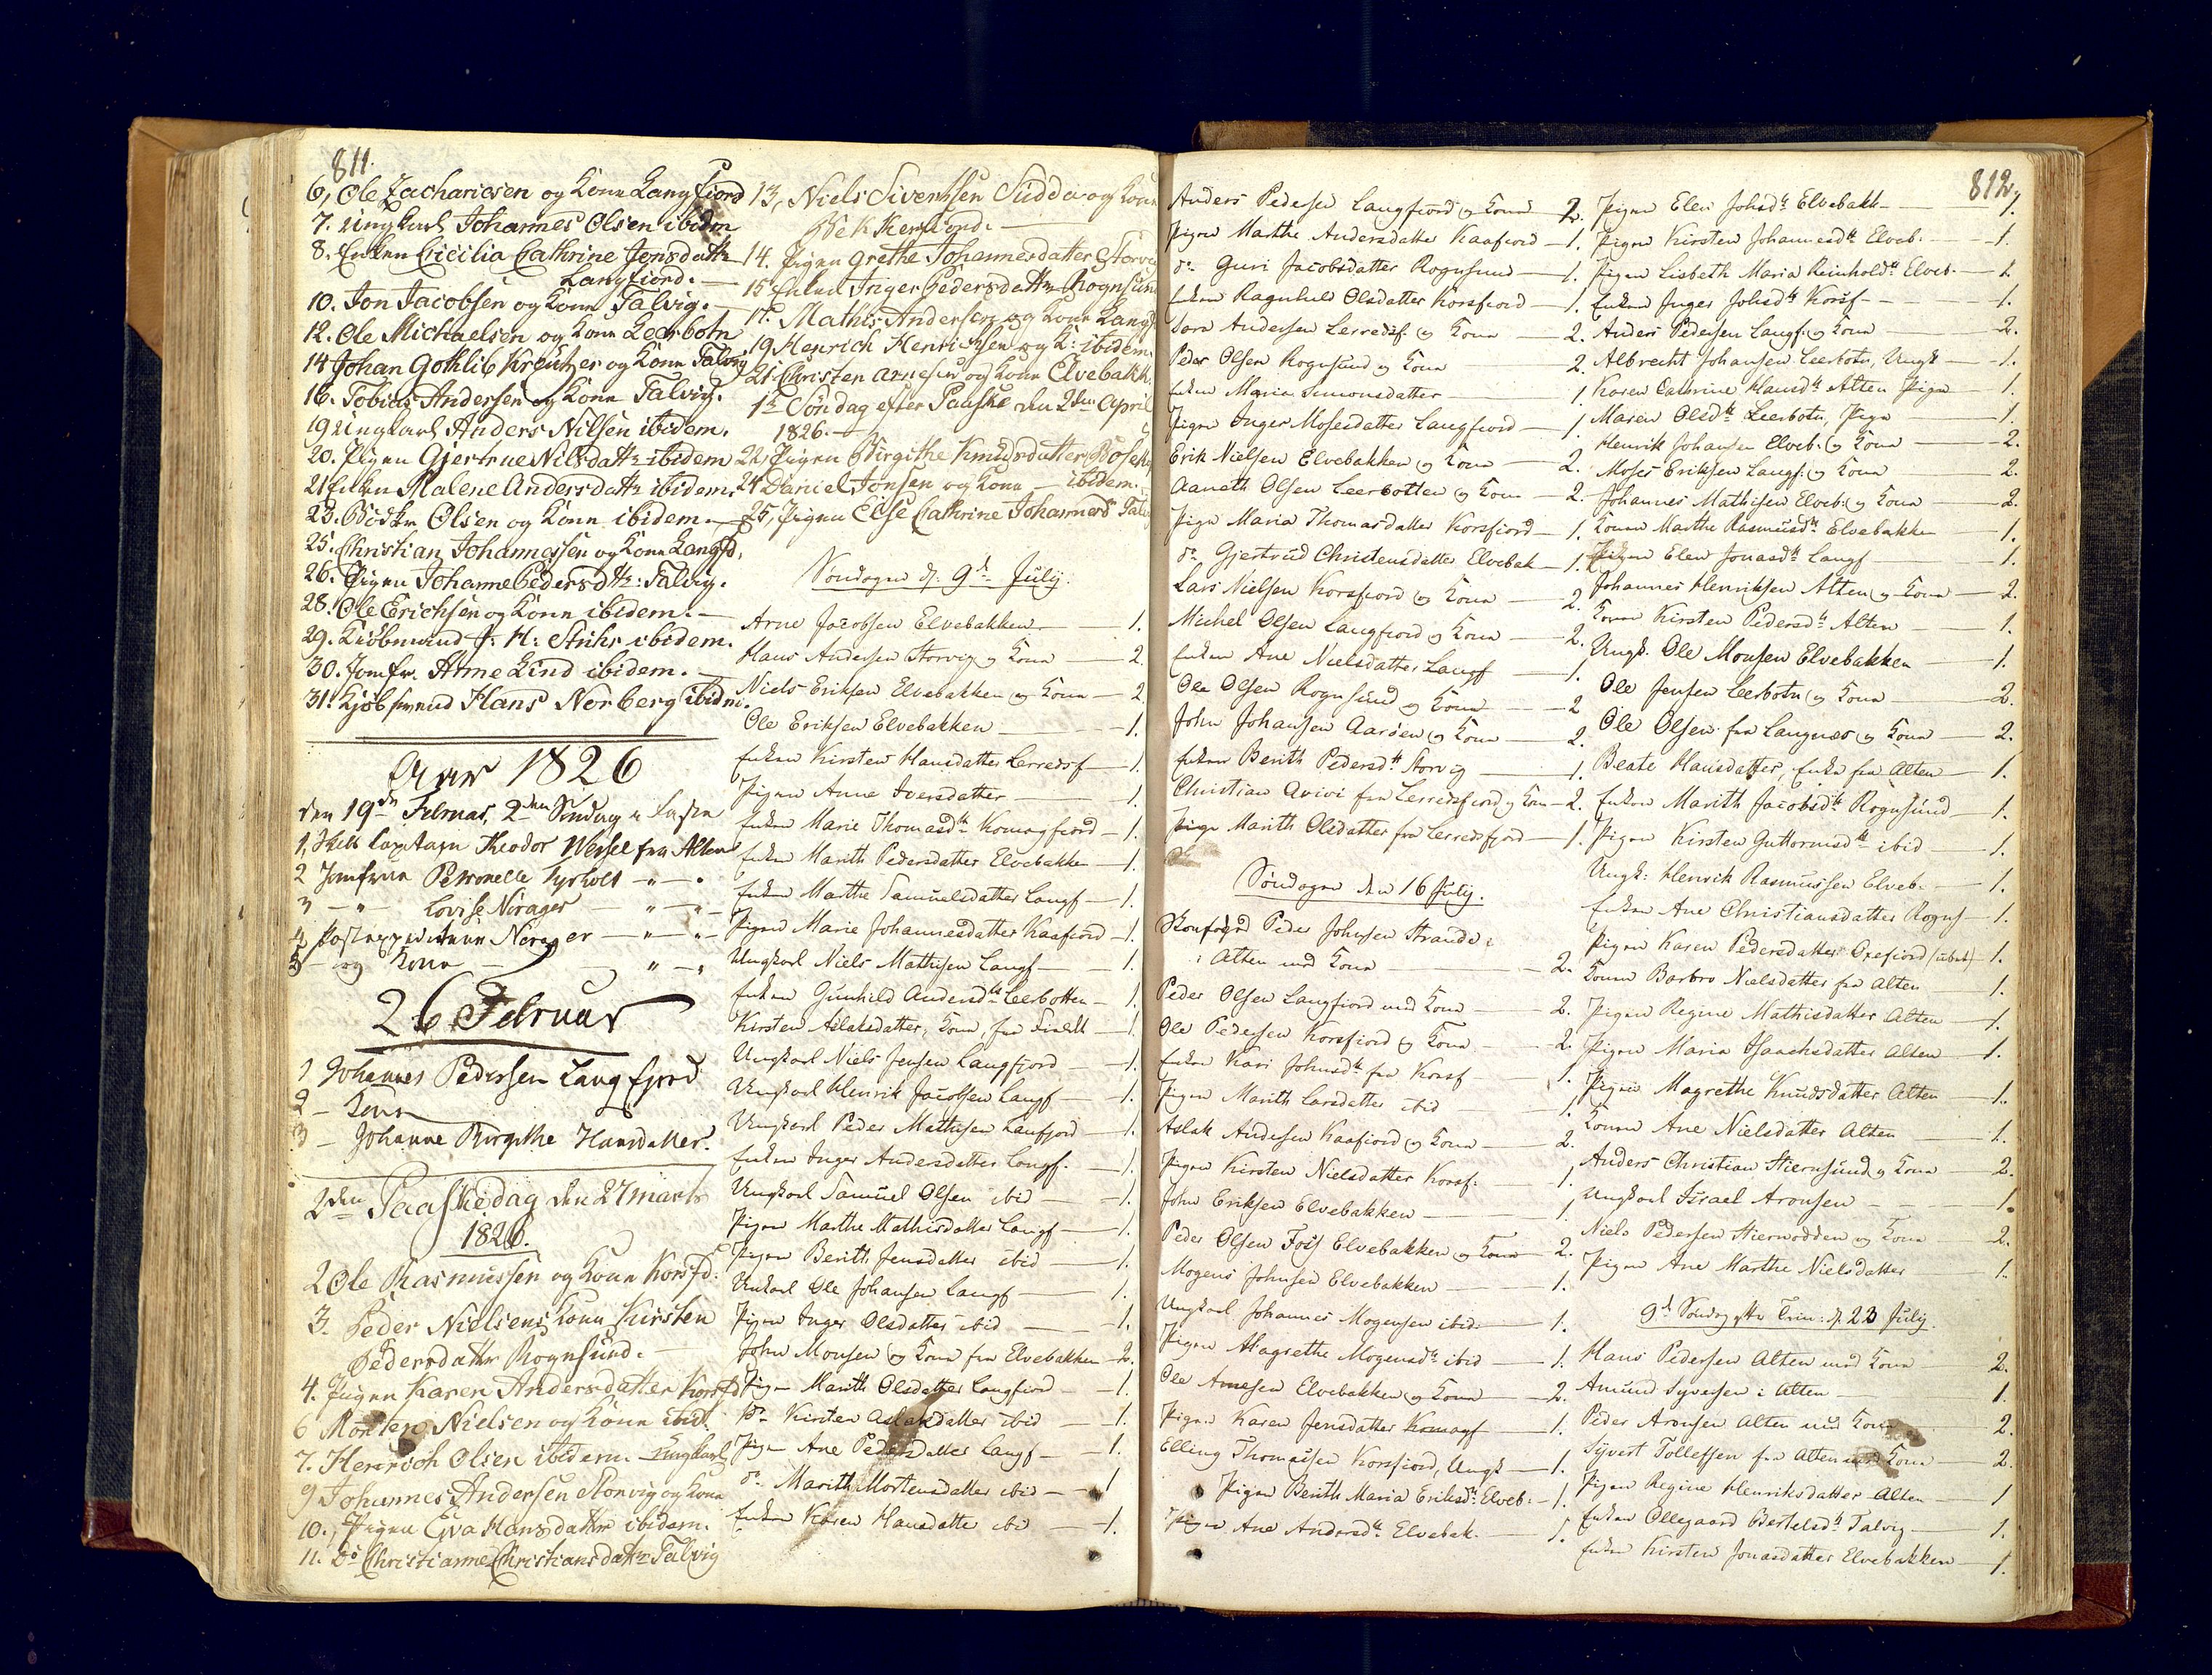 811.
6, Ole Zachariesen og Kone Langfiord
7. Ungkarl Johannes Olsen ibidm
8. Enken Cicilia Cathrine Jonsdattr
Langfiord.
10. Jon Jacobsen og Kone Talvig.
12. Ole Michaelsen og Kone Leerbotn
14 Johan Gothlib Kreutzer og Kone Talvig
16. Tobias Andersen og Kone Talvig.
19 Ungkarl Anders Nilsen ibidem.
20. Pigen Gjertrue Nilsdattr ibidem
21 Enken Malene Andersdattr ibidem.
23. Bødkr Olsen og Kone ibidem.
25. Christian Johannessen og Kone Langfd.
26. Pigen Johanne Pedersdtr: Talvig.
28. Ole Erichsen og Kone ibidem.
29. Kiøbmand J: H: Stuhr ibidem.
30. Jomfr. Anne Lind ibidem.
31. Kjøbmand Hans Norberg ibidm.
Aar 1826
den 19de Februar, 2den Søndag i Fasten
1, Capitain Theodor Wessel fra Alten
2 Jomfrue Petronelle Tyrholt - " -
3 - " - Lovise Norager - " -
4 Postexpediteur Norager - " -
5 - og Kone - " -
26 Februar
1 Johannes Pedersen Langfjord
2 - Kone
3 - Johanne Birgithe Hansdatter.
2den Paaskedag den 27 Marts
1826.
2 Ole Rasmussen og Kone Korsfd:
3. Peder Nielsens Kone Kirsten
Pedersdattr Rognsund.
4. Pigen Karen Andersdatter Korsfd
6 Morten Nielsen og Kone ibid.
7. Henrich Olsen ibidem Ungkarl
9 Johannes Andersen Storvig og Kone
10. Pigen Eva Hansdattr ibidem.
11. Do Christianne Christiansdattr Talvig
13, Niels Sivertsen Sudda og Kone
Bekkerfiord.
14. Pigen Grethe Johannesdatter Storvig
15 Enken Inger Pedersdattr Rognsund
17. Mathis Andersen og Kone Langf
19 Henrich Henrichsen og K: ibidem.
21 Christen Arnesen og Kone Elvebakk.
1ste Søndag efter Paaske den 2den April
1826.
22, Pigen Birgithe Knudsdatter Bosek
24 Daniel Jonsen og Kone - ibidem.
25, Pigen Else Cathrine Johannesd Talv
Søndagen d. 9de Julij.
Arne Jacobsen Elvebakken - 1.
Hans Andersen Storvig og Kone 2.
Niels Eriksen Elvebakken og Kone - 2
Ole Eriksen Elvebakken - 1.
Enken Kirsten Hansdatter Lerredsf - 1.
Pigen Anne Iversdatter - 1.
Enken Marie Thomasdtr Komagfiord - 1.
Enken Marith Pedersdatter Elvebakken - 1.
Enken Marthe Samuelsdatter Langf - 1.
Pigen Marie Johannesdatter Kaafiord - 1.
Ungkarl Niels Mathisen Langf - 1.
Enken Gunhild Andersdtr Leerbotten - 1.
Kirsten Aslaksdatter, Kone, fra - 1.
Ungkarl Niels Jensen Langfjord - 1.
Ungkarl Henrik Jacobsen Langf - 1.
Ungkarl Peder Mathisen Langfjord - 1.
Enken Inger Andersdatter Langf. - 1.
Ungkarl Samuel Olsen ibid - 1.
Pigen Marthe Mathisdatter Langf - 1.
Pigen Berith Jensdatter ibid - 1.
Unkarl Ole Johansen Langf - 1.
Pigen Inger Olsdatter ibid - 1.
John Monsen og Kone fra Elvebakken - 2.
Pigen Marith Olsdatter Langfiord - 1.
Do Kirsten Aslaksdatter ibid - 1.
Pigen Ane Pedersdatter Langf - 1.
do Marith Mortensdatter ibid - 1
Enken Karen Hansdatter ibid - 1.
812.
Anders Pedersen Langfiord og Kone 2.
Pigen Marthe Andersdatter Kaafiord - 1.
do Guri Jacobsdatter Rognsund - 1.
Enken Ragnhild Olsdatter Korsfiord - 1.
Andersen Lerredsf. og Kone - 2.
Peder Olsen Rognsund og Kone 2.
Enken Maria Simonsdatter 1.
Pigen Inger Mosesdatter Langfiord - 1.
Erik Nielsen Elvebakken og Kone - 2.
Aaneth Olsen Leerbotten og Kone - 2.
Pigen Maria Thomasdatter Korsfiord - 1.
do Gjertrud Christensdatter Elvebak - 1.
Lars Nielsen Korsfiord og Kone - 2.
Michel Olsen Langfiord og Kone - 2.
Enken Ane Nielsdatter Langf - 1.
Ole Olsen Rognsund og Kone - 2
John Johansen Aarøen og Kone - 2.
Enken Berith Pedersdtr Storvig - 1.
Christian fra Lerredsfiord og Kone - 2.
Pige Marith Olsdatter fra Lerredsfjord - 1.
Søndagen den 16 Julij.
Peder Johnsen Strande
i Alten med Kone - 2.
Peder Olsen Langfiord med Kone - 2.
Ole Pedersen Korsfiord og Kone - 2.
Enken Kari Johnsdtr fra Korsf - 1.
Pigen Marith Larsdatter ibid - 1.
Aslak Andersen Kaafiord og Kone - 2.
Pigen Kirsten Nielsdatter Korsf. 1.
John Eriksen Elvebakken - 1.
Peder Olsen Foss Elvebakken og Kone - 2.
Mogens Johnsen Elvebakken - 1.
Ungkarl Johannes Mogensen ibid. 1.
Pigen Magrethe Mogensdtr ibid - 1.
Ole Arnesen Elvebakken og Kone - 2.
Pigen Karen Jensdatter Komagf - 1.
Elling Thomassen Korsfiord, Ungk - 1.
Pigen Berith Maria Eriksdtr Elveb. - 1.
Pigen Ane Andersdtr Elvebak. 1.
Pigen Elen Johsdtr Elvebakk - 1.
Pigen Kirsten Johannesdtr Elveb. - 1.
Pigen Lisbeth Maria Reinholdtr Elveb. - 1.
Enken Inger Johsdtr Korsf - 1.
Anders Pedersen Langf. og Kone 2.
Albrecht Johansen Leerbotn, Ungk - 1.
Karen Catrine Hansdtr Alten Pigen 1.
Maren Olsdtr Leerbotn, Pige 1.
Henrik Johansen Elveb. og Kone 2.
Moses Eriksen Langf. og Kone 2.
Johannes Mathisen Elveb. og Kone - 2.
Konen Marthe Rasmusdtr Elvebakken 1.
Pigen Elen Jonasdtr Langf - 1.
Johannes Henriksen Alten og Kone - 2.
Konen Kirsten Pedersdtr Alten - 1.
Ungk. Ole Monsen Elvebakken - 1.
Ole Jensen Leerbotn og Kone - 2.
Ole Olsen fra Langnæs og Kone - 2.
Beate Hansdatter, Enke fra Alten - 1.
Enken Marith Jacobsdtr Rognsund - 1.
Pigen Kirsten Guttormsdtr ibid - 1.
Ungk: Henrik Rasmussen Elveb. - 1.
Enken Ane Christiansdatter Rogns - 1.
Pigen Karen Pedersdatter Oxefiord - 1.
Konen Barbro Nielsdatter fra Alten - 1.
Pigen Regine Mathisdatter Alten - 1.
Pigen Maria Isaachsdatter Alten - 1.
Pigen Magrethe Knudsdatter Alten - 1.
Konen Ane Nielsdatter Alten - 1.
Anders Christian Stiernsund og Kone 2.
Ungkarl Israel Aronsen - 1.
Niels Pedersen Stiernodden og Kone 2.
Pigen Ane Marthe Nielsdatter - 1.
9de Søndag efter Trin: d. 23 Julij.
Hans Pedersen Alten med Kone 2.
Amund Syversen i Alten - 1.
Peder Aronsen Alten med Kone 2.
Syvert Tollefsen fra Alten med Kone 2.
Pigen Regine Henriksdatter Alten - 1
Enken Ollegaard Bertelsdtr Talvig - 1.
Enken Kirsten Jonasdatter Elvebakken - 1.